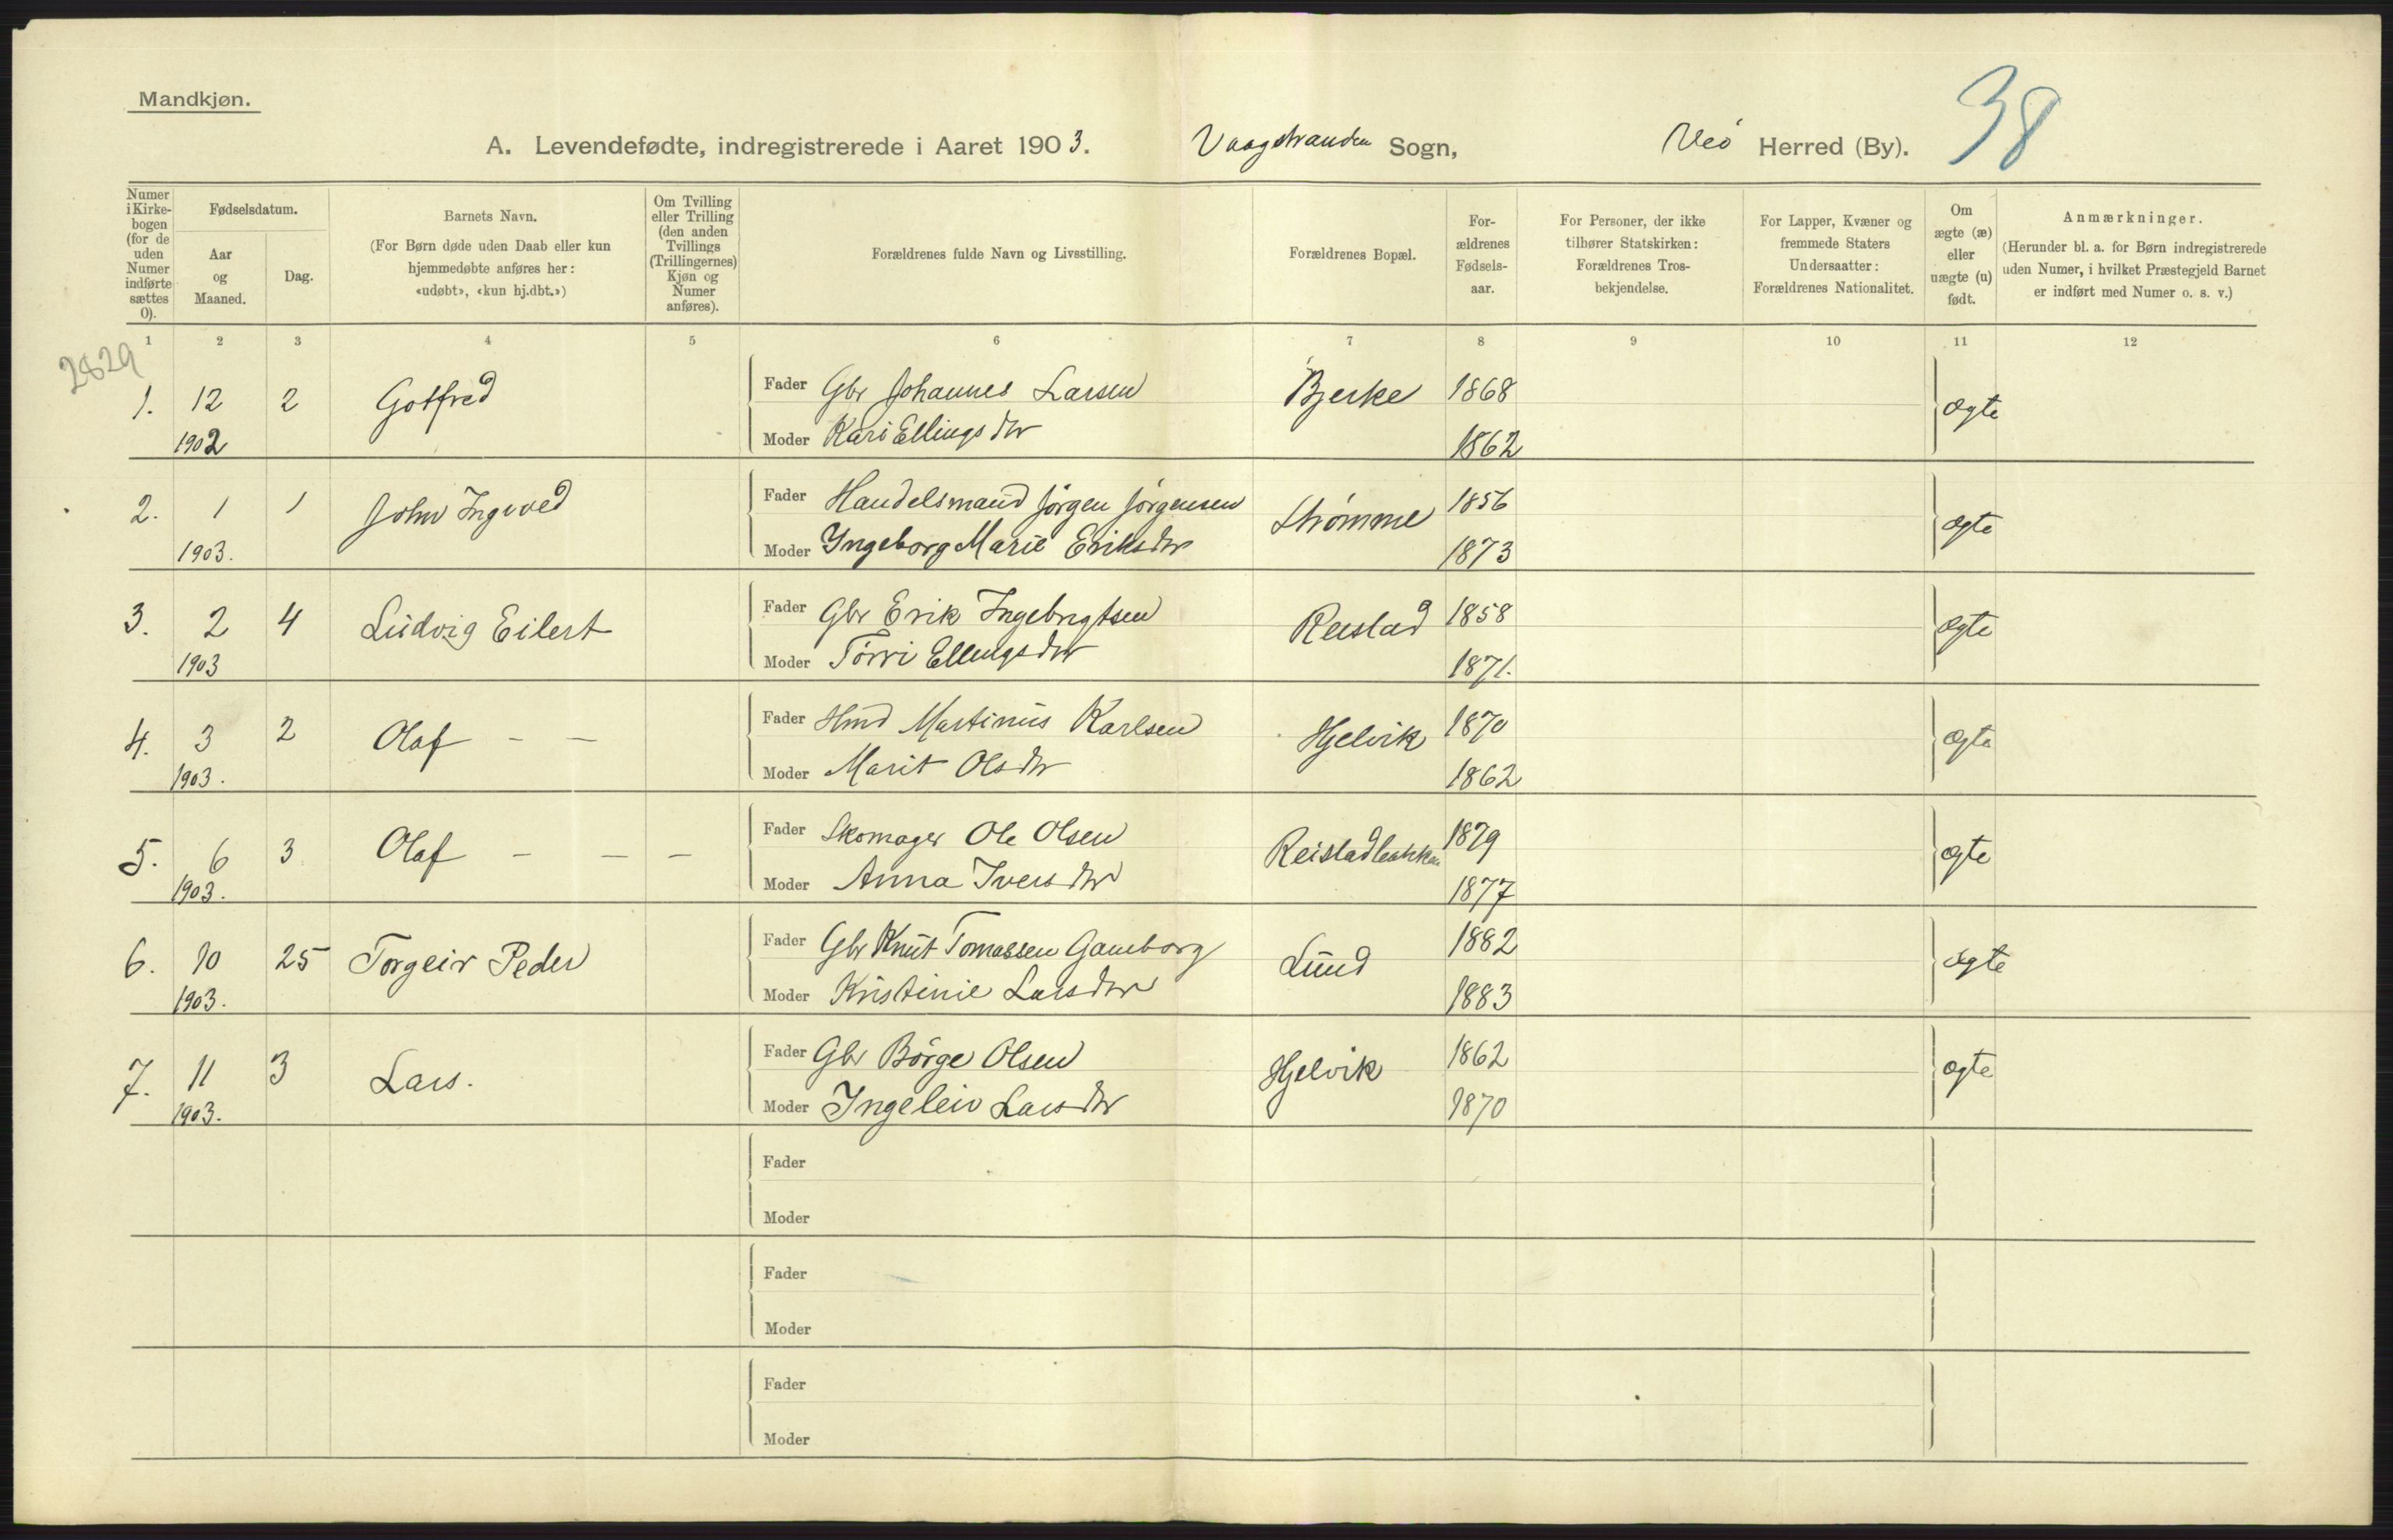 Mandkjøn.
38
A. Levendefødte, indregistrerede i Aaret 1903. Vaagstranden Sogn, Veø Herred (By).
Numer i Kirkebogen (for de uden Numer indførte sættes 0).
Fødselsdatum.
Aar og Maaned.
Dag.
Barnets Navn.
(For Børn døde uden Daab eller kun hjemmedøbte anføres her: «udøbt», «kun hj.dbt.»)
Om Tvilling eller Trilling (den anden Tvillings (Trillingernes) Kjøn og Numer anføres).
Forældrenes fulde Navn og Livsstilling.
Forældrenes Bopæl.
Forældrenes Fødselsaar.
For Personer, der ikke tilhører Statskirken: Forældrenes Trosbekjendelse.
For Lapper, Kvæner og fremmede Staters Undersaatter: Forældrenes Nationalitet.
Om ægte (æ) eller uægte (u) født.
Anmærkninger.
(Herunder bl. a. for Børn indregistrerede uden Numer, i hvilket Præstegjeld Barnet er indført med Numer o. s. v.)
1 2 3 4 5 6 7 8 9 10 11 12
2829
1. 12 2 Gotfred Fader Gbr Johannes Larsen Bjerke 1868 ægte
1902 Moder Kari Ellingsdtr 1862
2. 1 1 John Ingvald Fader Handelsmand Jörgen Jörgensen Strømme 1856 ægte
1903. Moder Ingeborg Marie Eriksdtr 1873
3. 2 4 Ludvig Eilert Fader Gbr Erik Ingebrigtsen Reistad 1858 ægte
1903 Moder Törri Ellingsdtr 1871.
4. 3 2 Olaf - - Fader Hmd Martinus Karlsen Hjelvik 1870 ægte
1903. Moder Marit Olsdtr 1862
5. 6 3 Olaf - - - Fader Skomager Ole Olsen Reistadbakken 1879 ægte
1903. Moder Anna Iversdtr 1877
6. 10 25 Torgeir Peder Fader Gbr Knut Tomassen Gamborg Lund 1882 ægte
1903. Moder Kristinie Larsdtr 1883
7. 11 3 Lars. Fader Gbr Börge Olsen Hjelvik 1862 ægte
1903. Moder Ingeleiv Larsdtr 1870
Fader
Moder
Fader
Moder
Fader
Moder